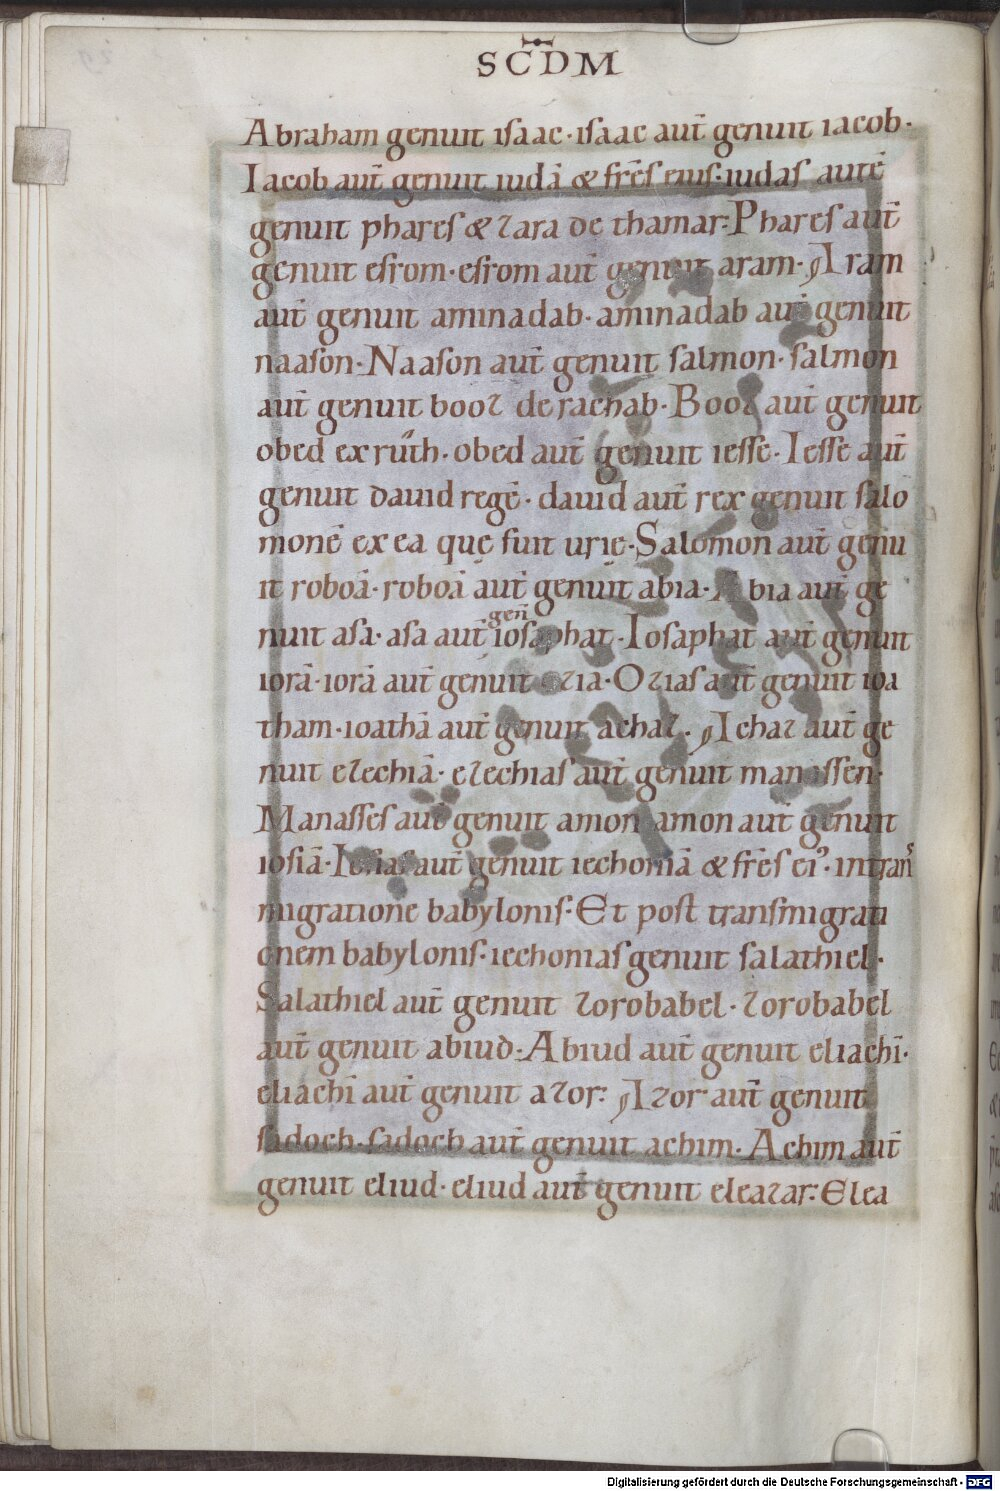 SCDM
Abraham genuit isaac · isaac aut̄ genuit iacob ·
Iacob aut̄ genuit iudā & fr̄es eius : iudas autē
genuit phares & zara de thamar : Phares aut̄
genuit esrom · esrom aut̄ genuit aram · Aram
aut̄ genuit aminadab · aminadab aut̄ genuit
naason · Naason aut̄ genuit salmon · salmon
aut̄ genuit booz de rachab · Booz aut̄ genuit
obed ex ruth · obed aut̄ genuit iesse · Iesse aut̄
genuit dauid regē · dauid aut̄ rex genuit salo
monē ex ea quę fuit urię · Salomon aut̄ genu
it roboā · roboā aut̄ genuit abia · Abia aut̄ ge
nuit asa · asa aut̄ gen̄ iosaphat · Iosaphat aut̄ genuit
iorā · iorā aut̄ genuit ozia · Ozias aut̄ genuit ioa
tham · ioathā aut̄ genuit achaz · Achaz aut̄ ge
nuit ezechiā · ezechias aut̄ genuit manassen ·
Manasses aut̄ genuit amon amon aut̄ genuit
iosiā · Iosias aut̄ genuit iechoniā & fr̄es ei᾽ · in trans
migratione babylonis · Et post transmigrati
onem babylonis · iechonias genuit salathiel ·
Salathiel aut̄ genuit zorobabel · zorobabel
aut̄ genuit abiud : Abiud aut̄ genuit eliachī ·
eliachī aut̄ genuit azor : Azor aut̄ genuit
sadoch · sadoch aut̄ genuit achim · Achim aut̄
genuit eliud · eliud aut̄ genuit eleazar : Elea
Digitalisierung gefördert durch die Deutsche Forschungsgemeinschaft - DFG